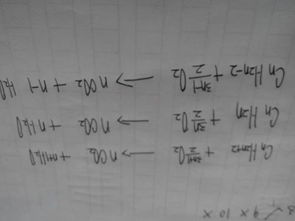 4 × 10 ×
CnH2n+2 + 3n+1/2 O2 → nCO2 + n+1H2O
CnH2n + 3n/2 O2 → nCO2 + nH2O
CnH2n-2 + 3n-1/2 O2 → nCO2 + n-1 H2O